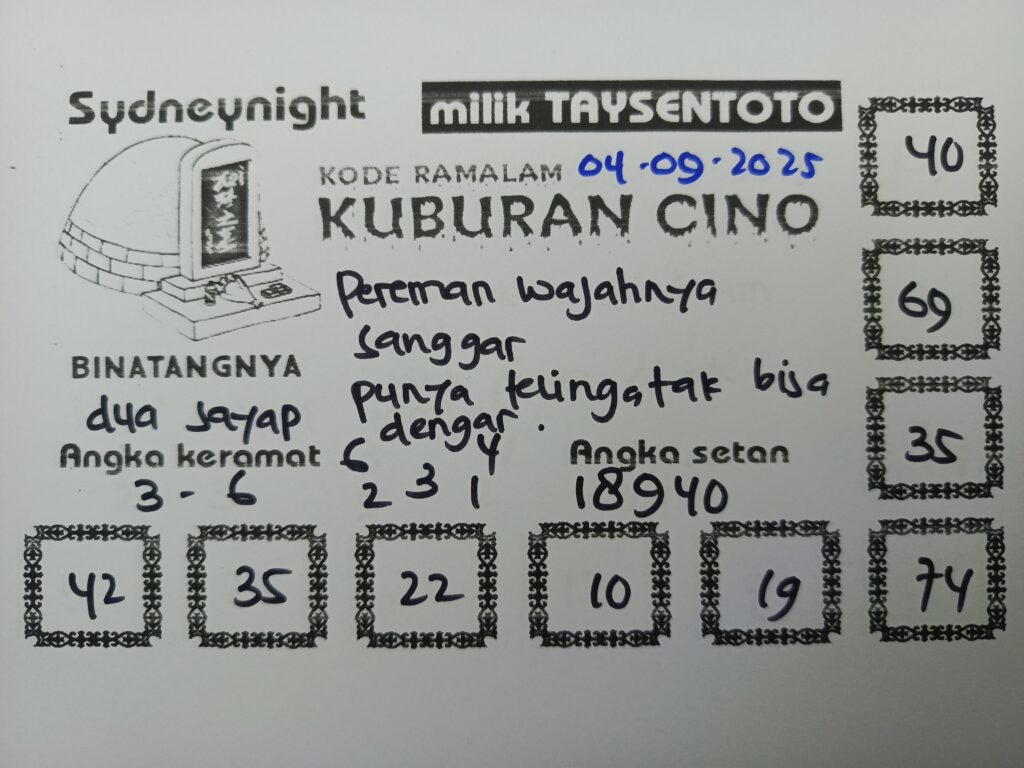 Sydneynight
milik TAYSENTOTO
KODE RAMALAM 04-09-2025
KUBURAN CINO
Pereman wajahnya
sanggar
punya telinga tak bisa
dengar.
BINATANGNYA
dua sayap
Angka keramat
3 - 6
6 4
2 3 1
Angka setan
18940
40
69
35
42 35 22 10 19 74